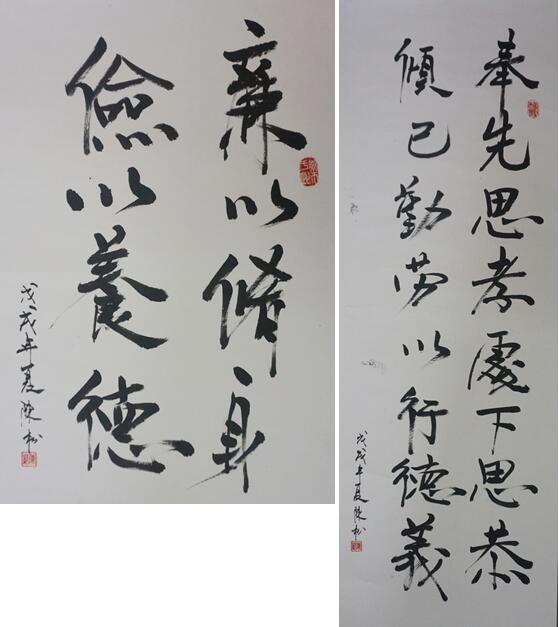 廉以脩身
儉以養德
戊戌年夏陳松
奉先思孝處下思恭
傾己勤勞以行德義
戊戌年夏陳松